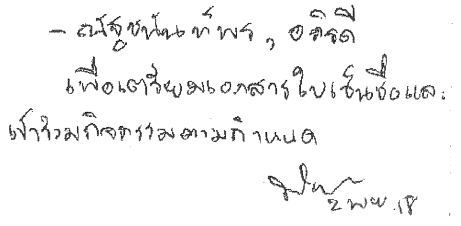 - ณัฐชนันท์พร, อภิรดี
เพื่อเตรียมเอกสารใบเซ็นชื่อและ
เข้าร่วมกิจกรรมตามกำหนด
2 พย. 18